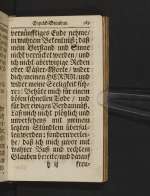 Sprüch-Gebetlein. 189
vernünfftiges Ende nehme/
in wahrem Bekenntniß; daß
mein Verstand und Sinne
nicht verrücket werden/ und
ich nicht aberwitzige Reden
oder Läster-Worte/ wider
dich/ meinen HERRN/ und
wider meine Seeligkeit füh-
re: Behüte mich für einem
bösen schnellen Ende/ und
für der ewigen Verdamniß.
Laß mich nicht plötzlich und
unversehens mit meinem
letzten Stündlein überfal-
len werden/ sondern verlei-
he/ daß ich mich zuvor mit
wahrer Buß und rechtem
Glauben bereite/ und darauf
freu-